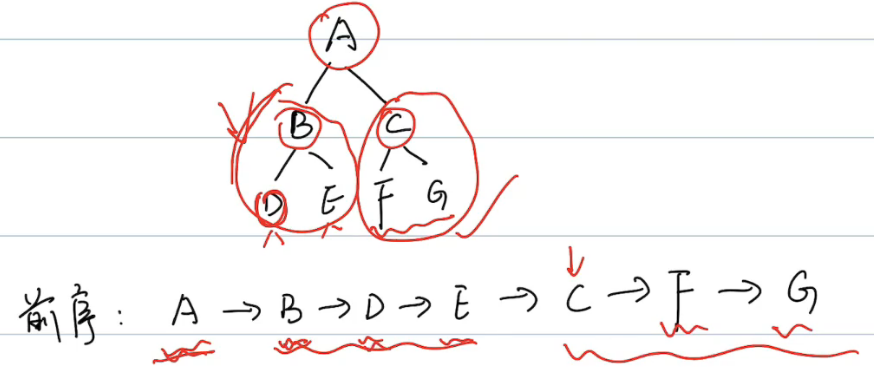 A
B C
D E F G
前序: A → B → D → E → C → F → G